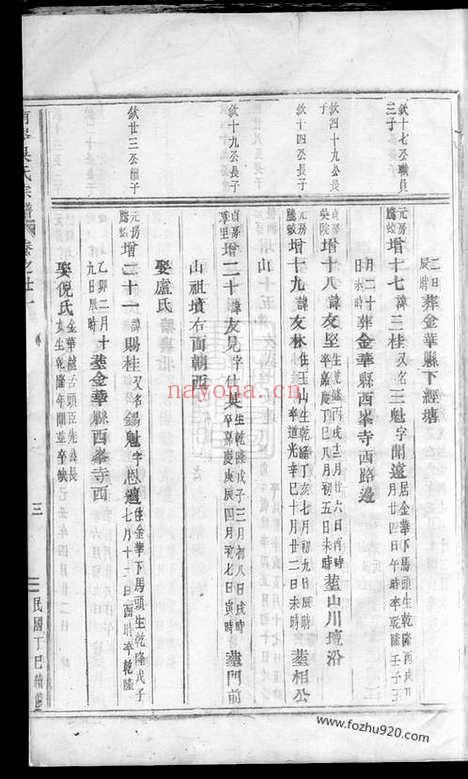 二日
辰時 葬金華縣下經塘
欽十七公職員
三子
元房
增十七 諱三桂 又名三魁 字開遠 居金華下馬頭生乾隆丙戌
月廿四日午時卒乾隆壬子三
月二十
日 時 葬金華縣西峯寺西路邊
欽四十九公長
子
貞房
增十八 諱友堅 生乾隆丙戌十二月廿六日酉時
卒嘉慶丁巳八月初五日未時 塟山川壇沿
欽十四公長子
元房
增十九 諱友林 住玉山生乾隆丁亥七月初九日辰時
卒道光辛巳十月廿二日未時 塟相公
山
欽十九公長子
貞房
增二十 諱友見 字仕英 生乾隆戊子三月初八日戌時
卒嘉慶庚辰四月初七日寅時 塟門前
山祖墳右面朝西
娶盧氏
欽廿三公繼子
元房
增二十一 諱賜桂 又名錫魁 字 住金華下馬頭生乾隆戊子
七月十二日酉時卒乾隆
乙卯二月十
九日辰時 塟金華縣西峯寺西
娶倪氏 金華 舌頭臣先公長
女生乾隆年間並卒缺
吳氏宗譜
卷之廿一
三
民國丁巳續修
nayona.cn
www.fozhu920.com